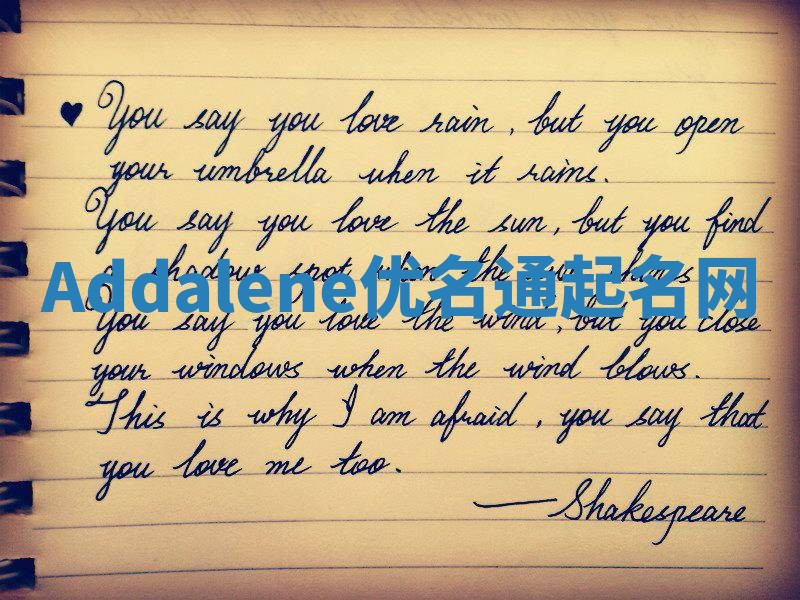 ♥ You say you love rain, but you open
your umbrella when it rains.
You say you love the sun, but you find
a shadow spot when the sun shines
Addalene优名通起名网
You say you love the wind, but you close
your windows when the wind blows.
This is why I am afraid, you say that
you love me too.
— Shakespeare